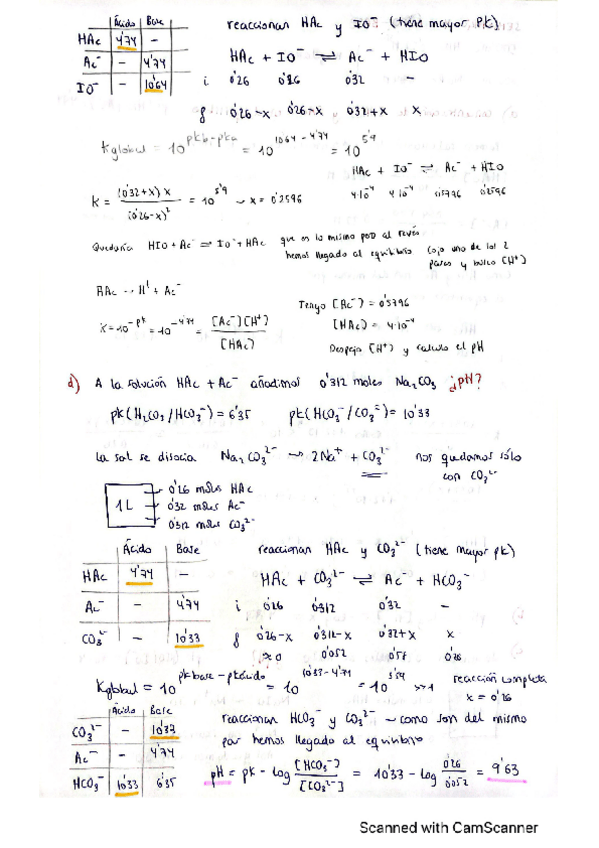 Ácido Base
HAc 4'74 —
Ac⁻ — 4'74
IO⁻ — 10'64
reaccionan HAc y IO⁻ (tiene mayor pk)
HAc + IO⁻ ⇌ Ac⁻ + HIO
i 0'26 0'26 0'32 —
f 0'26-x 0'26-x 0'32+x x
Kglobal = 10^(pkb-pka) = 10^(10'64-4'74) = 10^5'9
HAc + IO⁻ ⇌ Ac⁻ + HIO
4·10⁻⁴ 4·10⁻⁴ 0'5796 0'2596
K = (0'32+x) x / (0'26-x)² = 10^5'9 → x = 0'2596
Quedaría HIO + Ac⁻ ⇌ IO⁻ + HAc que es lo mismo pero al revés
hemos llegado al equilibrio
Cojo uno de los 2
pares y busco [H⁺]
HAc → H⁺ + Ac⁻
K = 10^-pk = 10^-4'74 = [Ac⁻][H⁺] / [HAc]
Tengo [Ac⁻] = 0'5796
[HAc] = 4·10⁻⁴
Despejo [H⁺] y calculo el pH
d) A la solución HAc + Ac⁻ añadimos 0'312 moles Na₂CO₃ ¿pH?
pk(H₂CO₃/HCO₃⁻) = 6'35 pk(HCO₃⁻/CO₃²⁻) = 10'33
la sal se disocia Na₂CO₃ → 2Na⁺ + CO₃²⁻ nos quedamos sólo
con CO₃²⁻
1L
0'26 moles HAc
0'32 moles Ac⁻
0'312 moles CO₃²⁻
Ácido Base
HAc 4'74 —
Ac⁻ — 4'74
CO₃²⁻ — 10'33
reaccionan HAc y CO₃²⁻ (tiene mayor pk)
HAc + CO₃²⁻ ⇌ Ac⁻ + HCO₃⁻
i 0'26 0'312 0'32 —
f 0'26-x 0'312-x 0'32+x x
≈0 0'052 0'58 0'26
Kglobal = 10^(pkbase-pkácido) = 10^(10'33-4'74) = 10^5'59 >>1 reacción completa
x = 0'26
Ácido Base
CO₃²⁻ — 10'33
Ac⁻ — 4'74
HCO₃⁻ 10'33 6'35
reaccionan HCO₃⁻ y CO₃²⁻ – como son del mismo
par hemos llegado al equilibrio
pH = pk - log [HCO₃⁻] / [CO₃²⁻] = 10'33 - log 0'26 / 0'052 = 9'63
Scanned with CamScanner